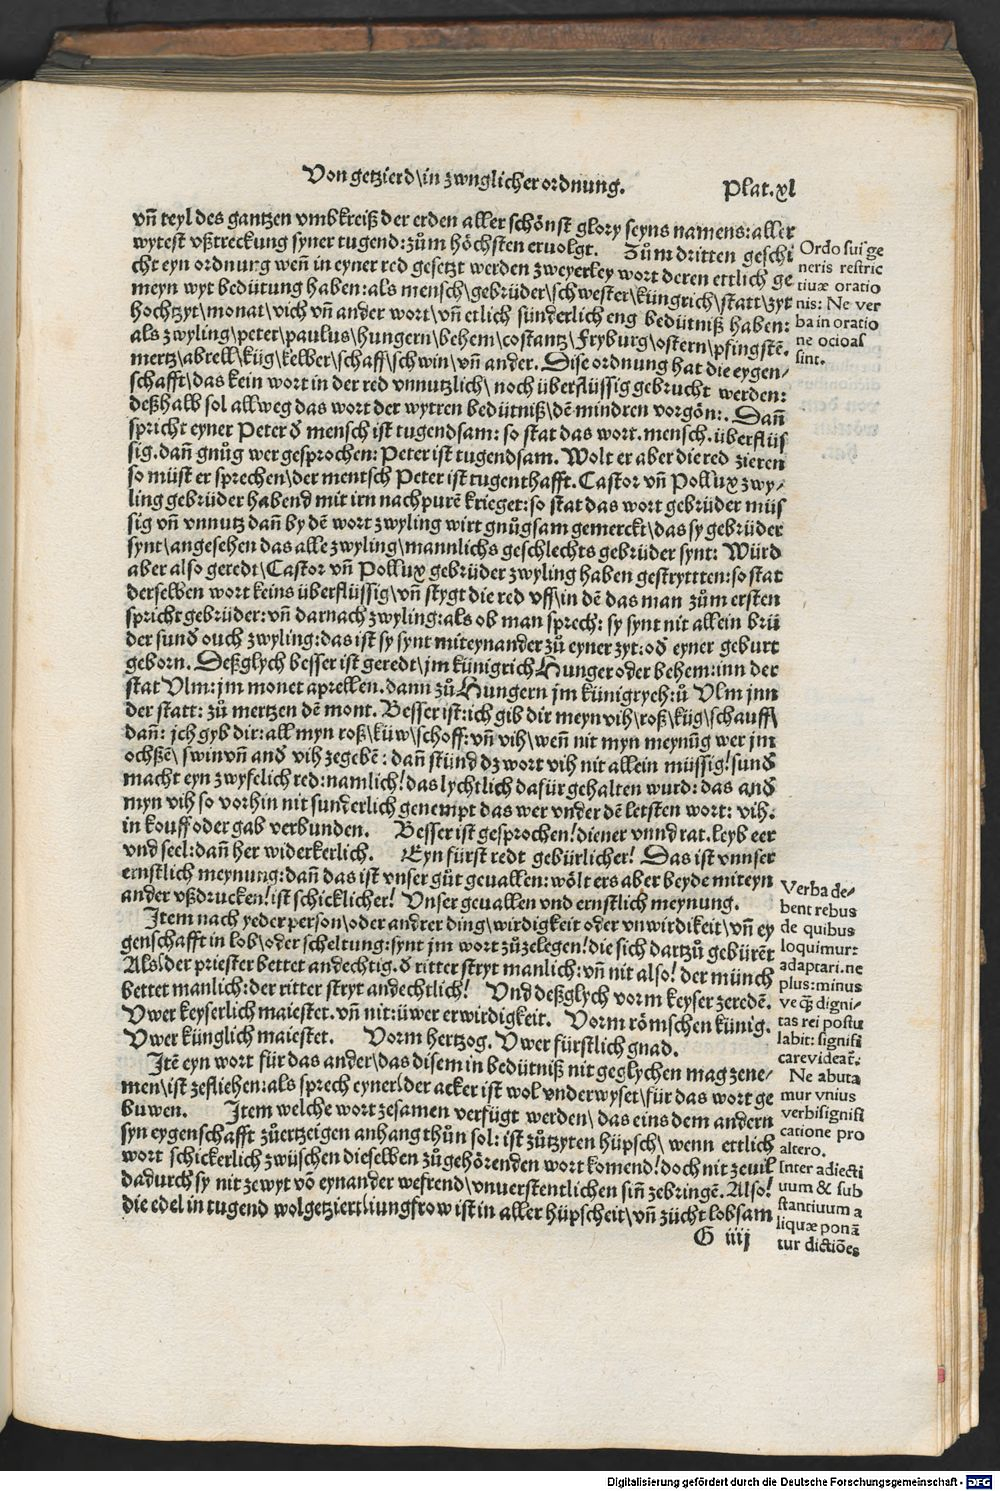 Von getzierd\in zwnglicher ordnung.
Plat.xl
vñ teyl des gantzen vmbkreiß der erden aller schönst glory seyns namens: aller
wytest vßtreckung syner tugend: zům höchsten eruolgt. Zům dritten geschi
cht eyn ordnung weñ in eyner red gesetzt werden zweyerley wort deren ettlich ge
meyn wyt bedütung haben: als mensch\gebrüder\schwester\küngrich\statt\zyt
hochtzyt\monat\vich vñ ander wort\vñ etlich sünderlich eng bedütniß haben:
als zwyling\peter\paulus\hungern\behem\costantz\Fryburg\ostern\pfingstē.
mertz\abrell\küg\kelber\schaff\schwin\vñ ander. Dise ordnung hat die eygen⸗
schafft\das kein wort in der red vnnutzlich\ noch überflüssig gebrucht werden:
deßhalb sol allweg das wort der wytren bedütniß\dē mindren vorgön:. Dañ
spricht eyner Peter đ mensch ist tugendsam: so stat das wort. mensch. überflüs
sig. dañ gnůg wer gesprochen: Peter ist tugendsam. Wolt er aber die red zieren
so müst er sprechen\der mentsch Peter ist tugenthafft. Castor vñ Pollux zwy⸗
ling gebrüder habend mit irn nachpurē krieget: so stat das wort gebrüder müs
sig vñ vnnutz dañ by dē wort zwyling wirt gnůgsam gemerckt\das sy gebrüder
synt\angesehen das alle zwyling\mannlichs geschlechts gebrüder synt: Würd
aber also geredt\Castor vñ Pollux gebrüder zwyling haben gestryttten: so stat
derselben wort keins überflüssig\vñ stygt die red vff\in dē das man zům ersten
spricht gebrüder: vñ darnach zwyling: als ob man sprech: sy synt nit allein brü
der sunđ ouch zwyling: das ist sy synt miteynander zů eyner zyt: ođ eyner geburt
geborn. Deßglych besser ist geredt\jm künigtich Hunger oder behem: inn der
stat Vlm: jm monet aprellen. dann zů Hungern jm künigryeh: ů Vlm jnn
der statt: zů mertzen dē mont. Besser ist: ich gib dir meyn vih\roß\küg\schauff\
dañ: jch gyb dir: all myn roß\küw\schoff: vñ vih\weñ nit myn meynūg wer jm
ochßē\ swin vñ anđ vih zegebē: dañ stünd dz wort vih nit allein müssig! sunđ
macht eyn zwyfelich red: namlich! das lychtlich dafür gehalten wurd: das anđ
myn vih so vorhin nit sunderlich genempt das wer vnder dē letsten wort: vih.
in kouff oder gab verbunden. Besser ist gesprochen! diener vnnd rat. leyb eer
vnd seel: dañ her widerkerlich. Eyn fürst redt gebürlicher! Das ist vnnser
ernstlich meynung: dañ das ist vnser gůt geuallen: wölt ers aber beyde miteyn
ander vßdrucken! ist schicklicher! Vnser geuallen vnd ernstlich meynung.
Item nach yeder person\oder andrer ding\wirdigkeit oder vnwirdikeit\vñ ey
genschafft in lob\oder scheltung: synt jm wort zůzelegen! die sich dartzů gebürēt
Als\der priester bettet andechtig. đ ritter stryt manlich: vñ nit also! der münch
bettet manlich: der ritter stryt andechtlich! Vnd deßglych vorm keyser zeredē.
Vwer keyserlich maiester. vñ nit: üwer erwirdigkeit. Vorm römschen künig.
Vwer künglich maiestet. Vorm hertzog. Vwer fürstlich gnad.
Itē eyn wort für das ander\das disem in bedütniß nit geglychen mag zene⸗
men\ist zefliehen: als sprech eyner\der acker ist wol vnderwyset\für das wort ge
buwen. Item welche wort zesamen verfügt werden\ das eins dem andern
syn eygenschafft zůertzeigen anhang thůn sol: ist zůtzyten hüpsch\ wenn ettlich
wort schickerlich zwüschen dieselben zůgehörenden wort komend! doch nit zeuil
dadurch sy nit zewyt vō eynander wefrend\vnuerstentlichen siñ zebringē. Also!
die edel in tugend wolgetziert\iungfrow ist in aller hüpscheit\vñ zücht lobsam
G iiij
Ordo sui ge
neris restric
tiuæ oratio
nis: Ne ver
ba in oratio
ne ociosa
sint.
Verba de⸗
bent rebus
de quibus
loquimur:
adaptari. ne
plus: minus
ve q̄ȝ digni⸗
tas rei postu
labit: signifi
care videat̄.
Ne abuta
mur vnius
verbi signifi
catione pro
altero.
Inter adiecti
uum & sub
stantiuum a
liquæ ponā
tur dictiōes
Digitalisierung gefördert durch die Deutsche Forschungsgemeinschaft - DFG